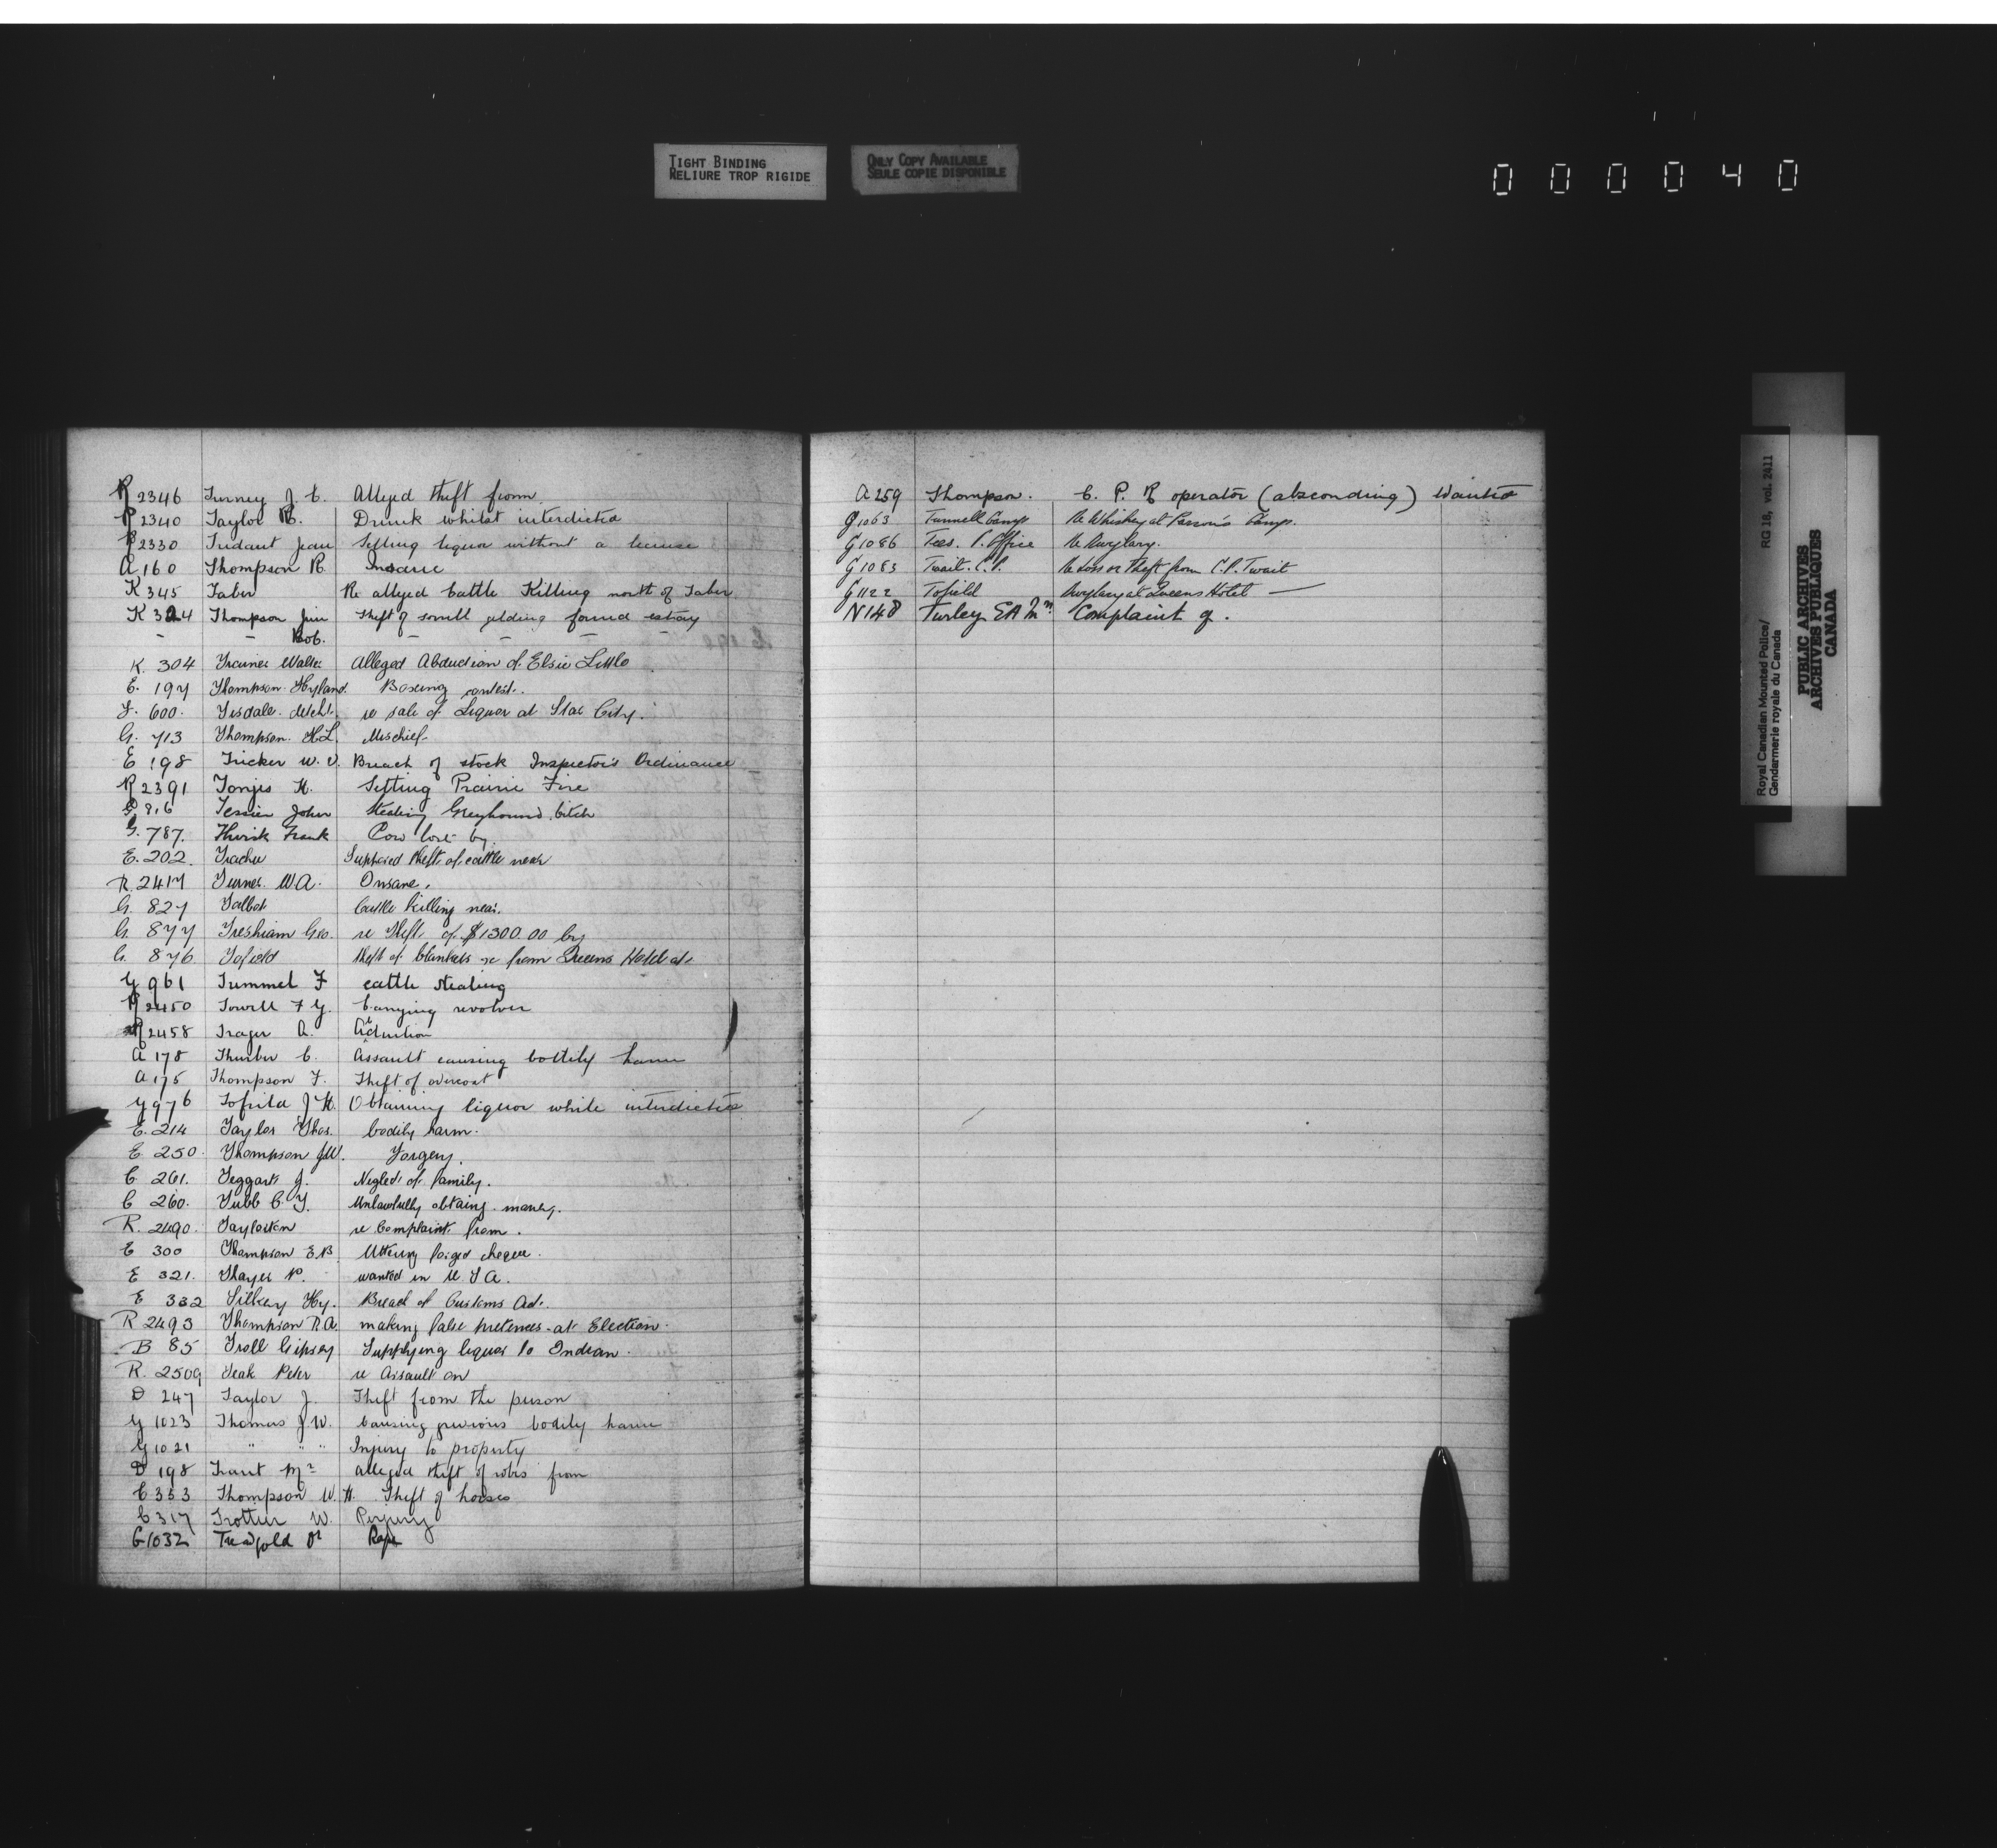 TIGHT BINDING
RELIURE TROP RIGIDE
ONLY COPY AVAILABLE
SEULE COPIE DISPONIBLE
0 0 0 0 4 0
R 2346 Turney J. C. Alleged theft from
R 2340 Taylor R. Drunk whilst interdicted
R 2330 Tridaut Jean Selling liquor without a license
A 160 Thompson R. Insane
K 345 Taber Re alleged Cattle Killing north of Taber
K 324 Thompson Jim Theft of sorrell gelding found estray
– – Bob. – – – –
K. 304 Trainer Walter Alleged Abduction of Elsie Little
E. 197 Thompson-Hyland. Boxing contest.
F. 600. Tisdale. Detcht. re sale of Liquor at Star City.
G. 713 Thompson. H.L. Mischief-
E 198 Tricker W. V. Breach of stock Inspector's Ordinance
R 2391 Tonjes H. Setting Prairie Fire
G. 816 Tessier John Stealing Greyhound bitch
G. 787. Thirsk Frank Cow lost by.
E. 202. Trachu Supposed theft of cattle near
R. 2417 Turner. W.A. Insane.
G. 827 Talbot Cattle killing near.
G. 877 Tresham Geo. re Theft of $1300.00 by
G. 876 Tofield theft of blankets re from Queens Hotel at
G 961 Tummel F cattle stealing
R 2450 Towell F G. Carrying revolver
R 2458 Trager A. Abduction
A 178 Thurber C. Assault causing bodily harm
A 175 Thompson F. Theft of overcoat
G 976 Tofield J H. Obtaining liquor while interdicted
E. 214 Taylor Thos. bodily harm.
E 250. Thompson J.W. Forgery.
C 261. Teggart J. Neglect of family.
C 260. Tubb C. Y. Unlawfully obtaing. money.
R. 2490. Taylorton re Complaint from.
E 300 Thompson E.B. Uttering forged cheque.
E 321. Thayer P. wanted in U. S A.
E 332 Tilkey Hy. Breach of Customs Act.
R 2493 Thompson R.A. making false pretences at Election.
B 85 Troll Gipsey Supplying liquor to Indian.
R. 2509 Teak Peter re Assault on
D 247 Taylor J. Theft from the person
G 1023 Thomas J.W. Causing grevious bodily harm
G 1021 " " " Injury to property
D 198 Trant Mr alleged theft of robes from
C 353 Thompson W. H. Theft of horses
C 317 Trottier W. Perjury
G 1032 Treadgold Dr Rape
A 259 Thompson. C. P. R operator (absconding) Wanted
G 1063 Tunnell Camp Re Whiskey at Parson's Camp.
G 1086 Tees. P. Office Re Burglary.
G 1083 Twait. C.P. Re Loss or theft from C.P. Twait
G 1122 Tofield Burglary at Queens Hotel —
N 148 Turley E A Mrs. Complaint of.
Royal Canadian Mounted Police/ RG 18, vol. 2411
Gendarmerie royale du Canada
PUBLIC ARCHIVES
ARCHIVES PUBLIQUES
CANADA